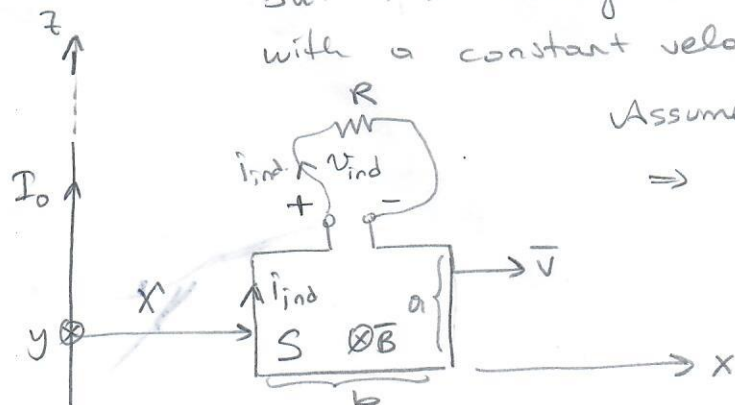 with a constant velo
Assume
⇒
z
R
i_ind
v_ind
+ -
I_0
V̄
X
i_ind
a
y ⊗
S ⊗B̄
x
b